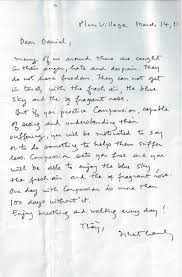 Plum Village March 14, 11
Dear Daniel,
many of us around these are caught
in their anger, hate and despair. They
do not have freedom. They can not get
in touch with the fresh air, the blue
sky and the of fragrant rose.
But if you practice Compassion, capable
of seeing and understanding their
suffering, you will be motivated to say
or to do something to help them suffer
less. Compassion sets you free and you
will be able to enjoy the blue sky
the fresh air and the of fragrant rose.
One day with Compassion is more than
100 days without it.
Enjoy breathing and walking every day!
Thay,
Nhat Hanh